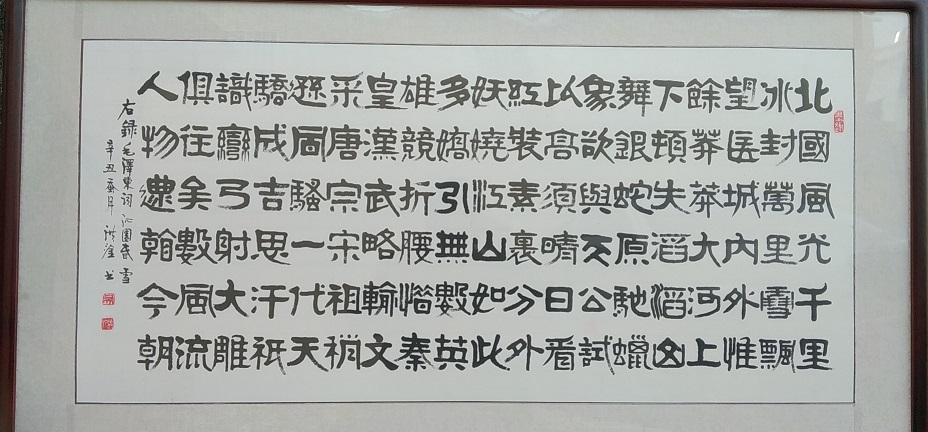 北國風光千里
冰封萬里雪飄
望長城內外惟
餘莽莽大河上
下頓失滔滔山
舞銀蛇原馳蠟
象欲與天公試
比高須晴日看
紅裝素裹分外
妖嬈江山如此
多嬌引無數英
雄競折腰惜秦
皇漢武略輸文
采唐宗宋祖稍
遜風騷一代天
驕成吉思汗祇
識彎弓射大雕
俱往矣數風流
人物還看今朝
右錄毛澤東詞沁園春雪
辛丑春月 书